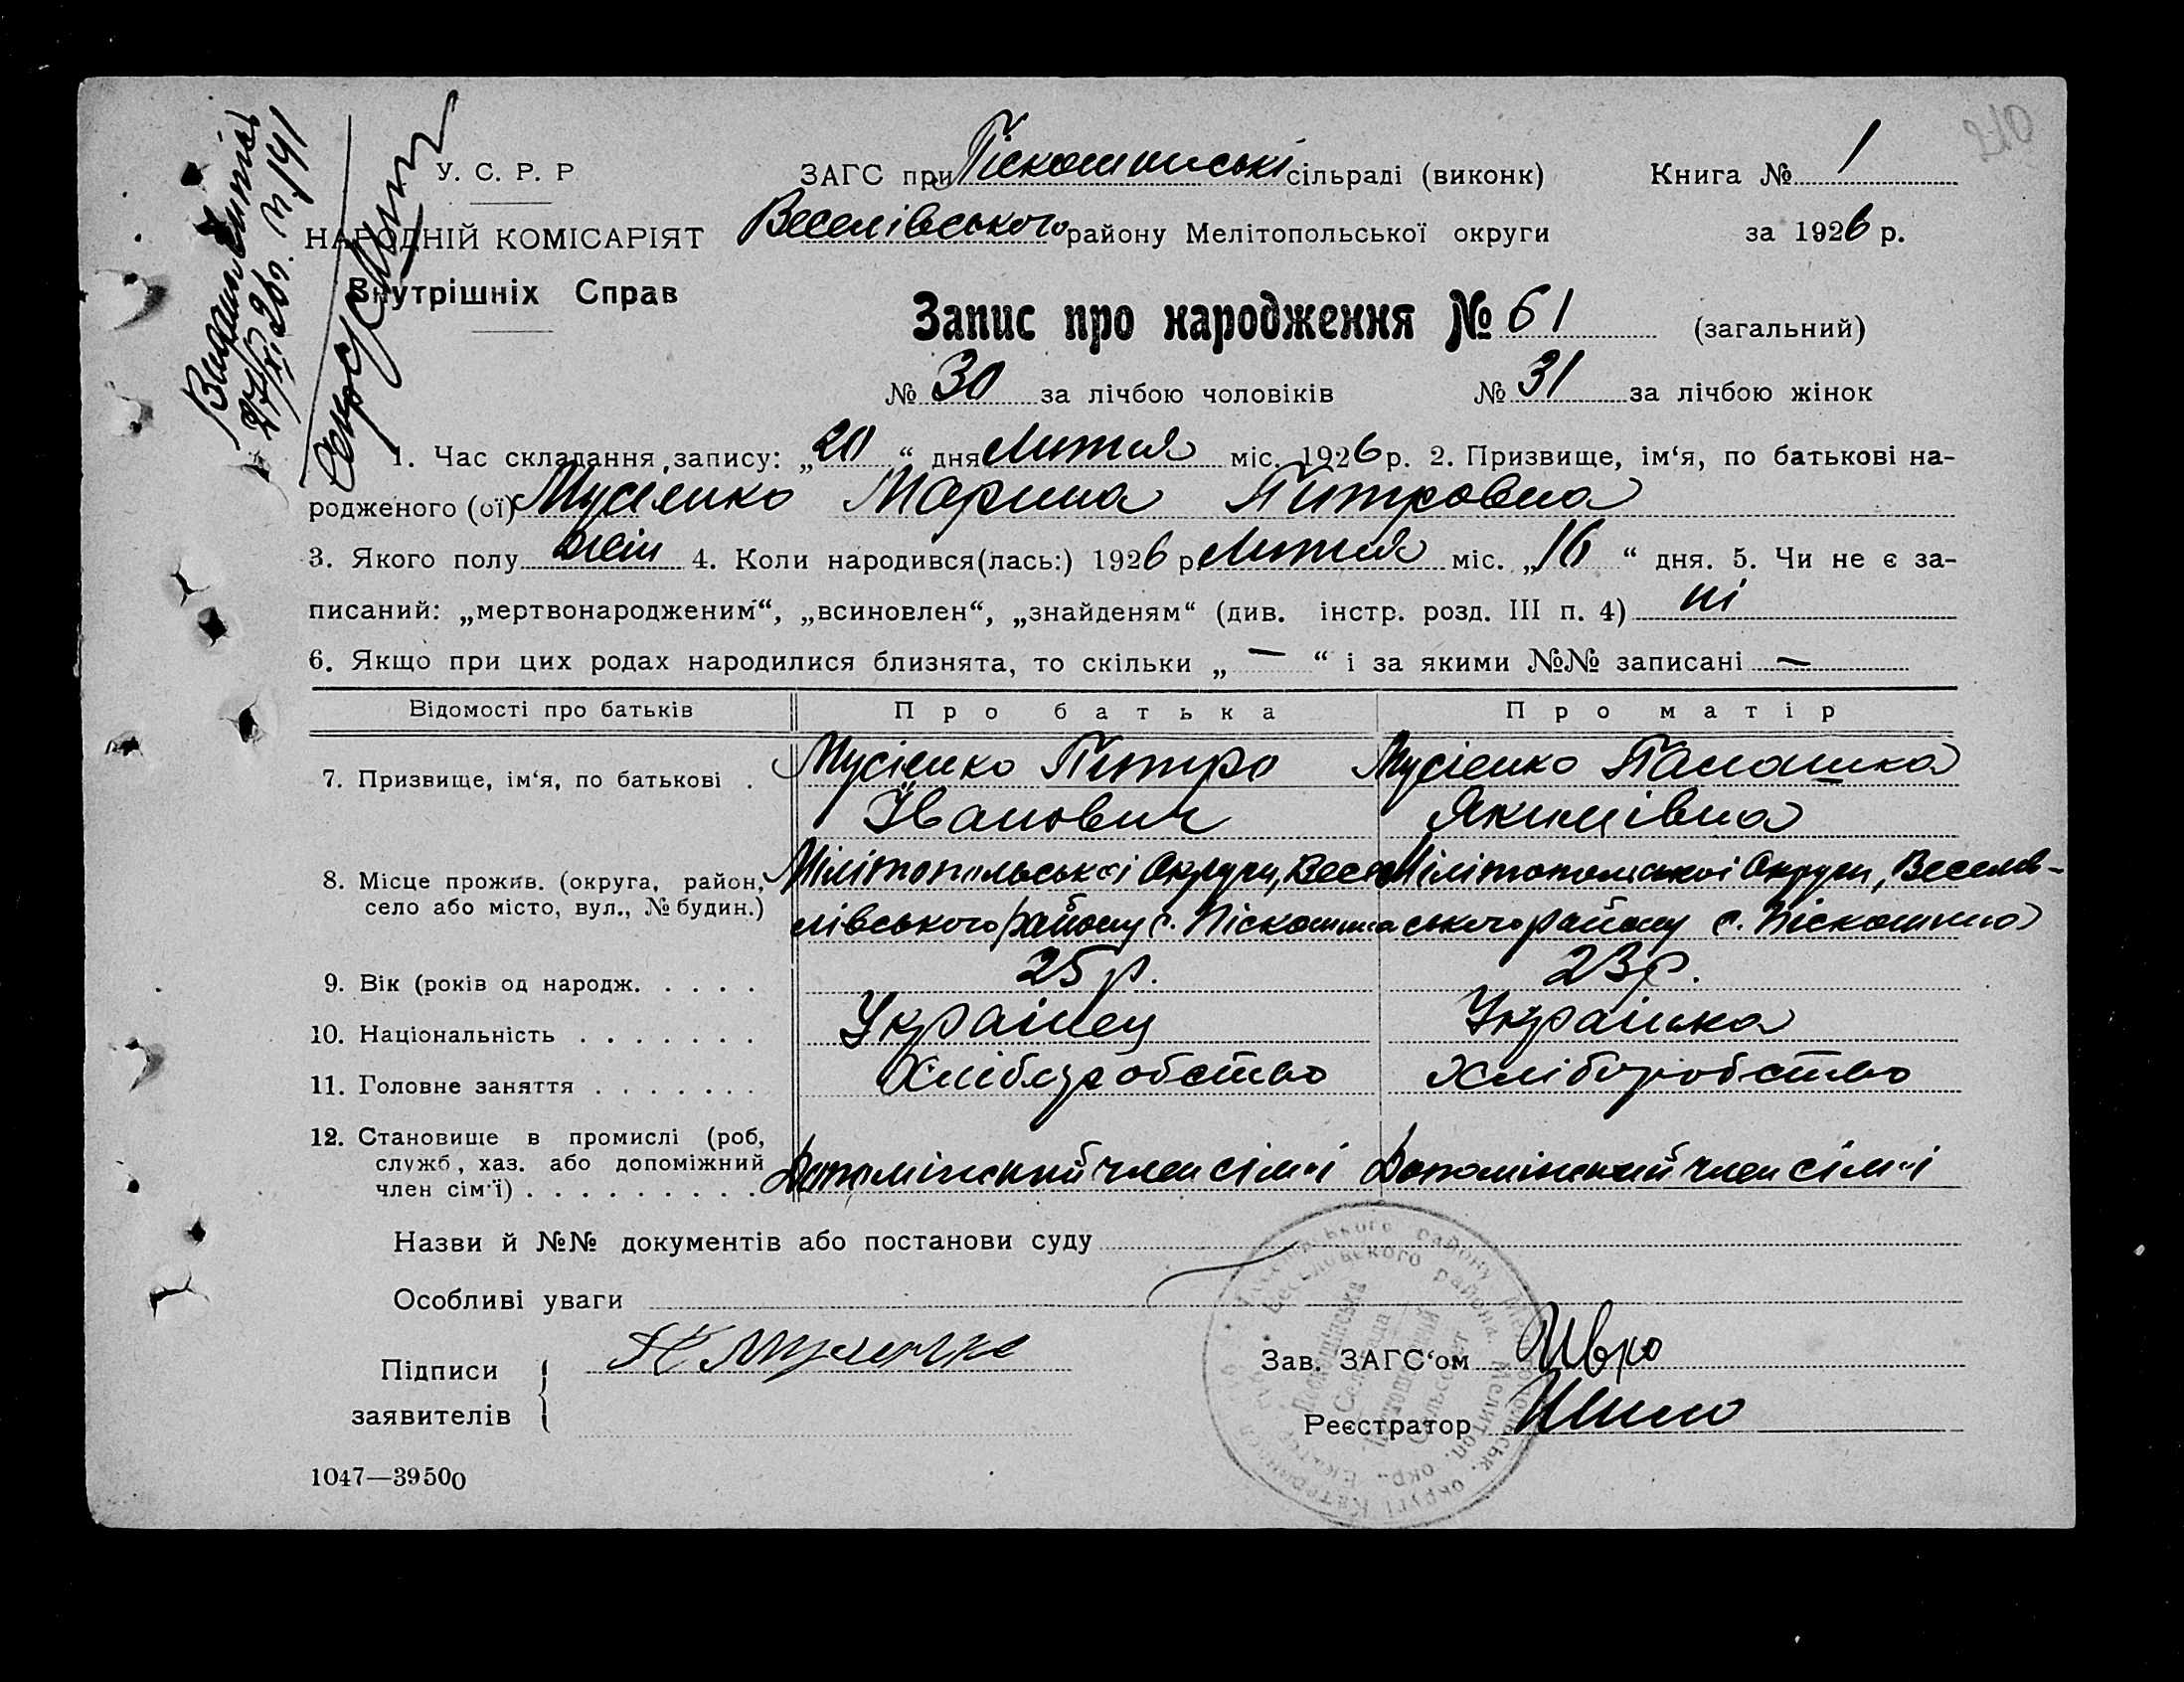 210
У. С. Р. Р
НАРОДНІЙ КОМІСАРІЯТ
Внутрішніх Справ
27/XI 26 р. № 191
ЗАГС при Піскошинські сільраді (виконк)
Книга № 1
Веселівського району Мелітопольської округи
за 1926 р.
Запис про народження № 61 (загальний)
№ 30 за лічбою чоловіків № 31 за лічбою жінок
1. Час складання запису: „20“ дня Лютня міс. 1926 р. 2. Призвище, ім‘я, по батькові на-
родженого (ої) Мусіенко Марина Питровна
3. Якого полу жін 4. Коли народився(лась:) 1926 р. Лютня міс. „16“ дня. 5. Чи не є за-
писаний: „мертвонародженим“, „всиновлен“, „знайденям“ (див. інстр. розд. III п. 4) ні
6. Якщо при цих родах народилися близнята, то скільки „ — “ і за якими №№ записані —
Відомості про батьків Про батька Про матір
7. Призвище, ім‘я, по батькові . Мусіенко Питро Мусіенко Палашка
Іванович Якимівна
8. Місце прожив. (округа, район, Мілітопольської Округи, Весе Мілітопольскої Округи, Веселів-
село або місто, вул., № будин.) лівського району с. Піскошина ського району с. Піскошино
9. Вік (років од народж. . . . . 25 р. 23 р.
10. Національність . . . . . . . Українец Українка
11. Головне заняття . . . . . . . Хліборобство Хліборобство
12. Становище в промислі (роб,
служб, хаз. або допоміжний Допоміжний член сімї Допоміжний член сімї
член сім‘ї) . . . . . . . . . .
Назви й №№ документів або постанови суду
Особливі уваги
Підписи
заявителів
Зав. ЗАГС‘ом
Реєстратор
1047—39500